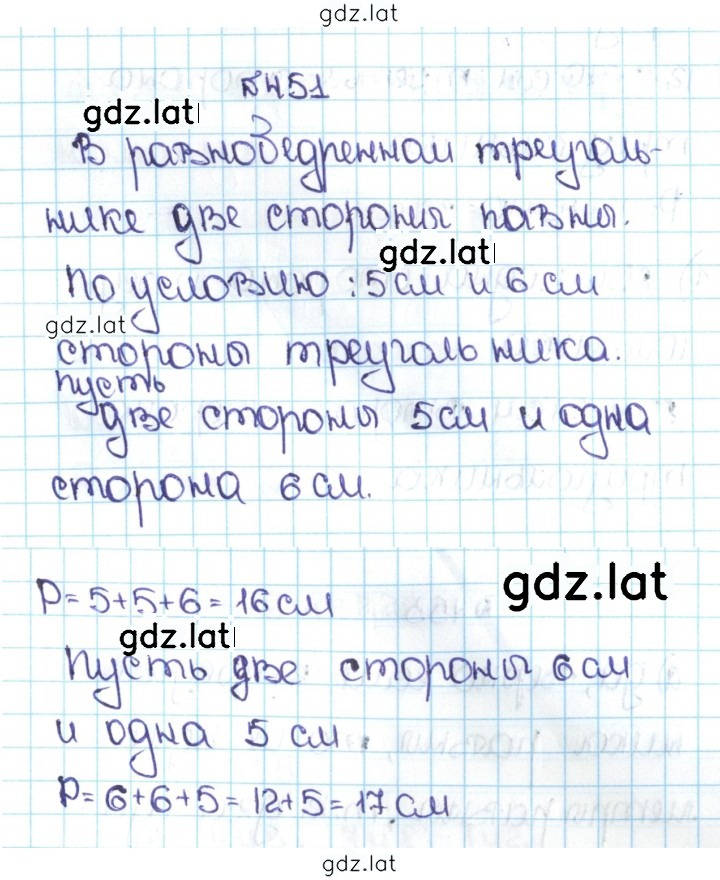 gdz.lat
№451
gdz.lat
В равнобедренном треуголь-
нике две стороны равны.
gdz.lat
По условию: 5 см и 6 см
gdz.lat
стороны треугольника.
пусть
две стороны 5 см и одна
сторона 6 см.
gdz.lat
P = 5+5+6 = 16 см
gdz.lat
Пусть две стороны 6 см
и одна 5 см.
P = 6+6+5 = 12+5 = 17 см
gdz.lat